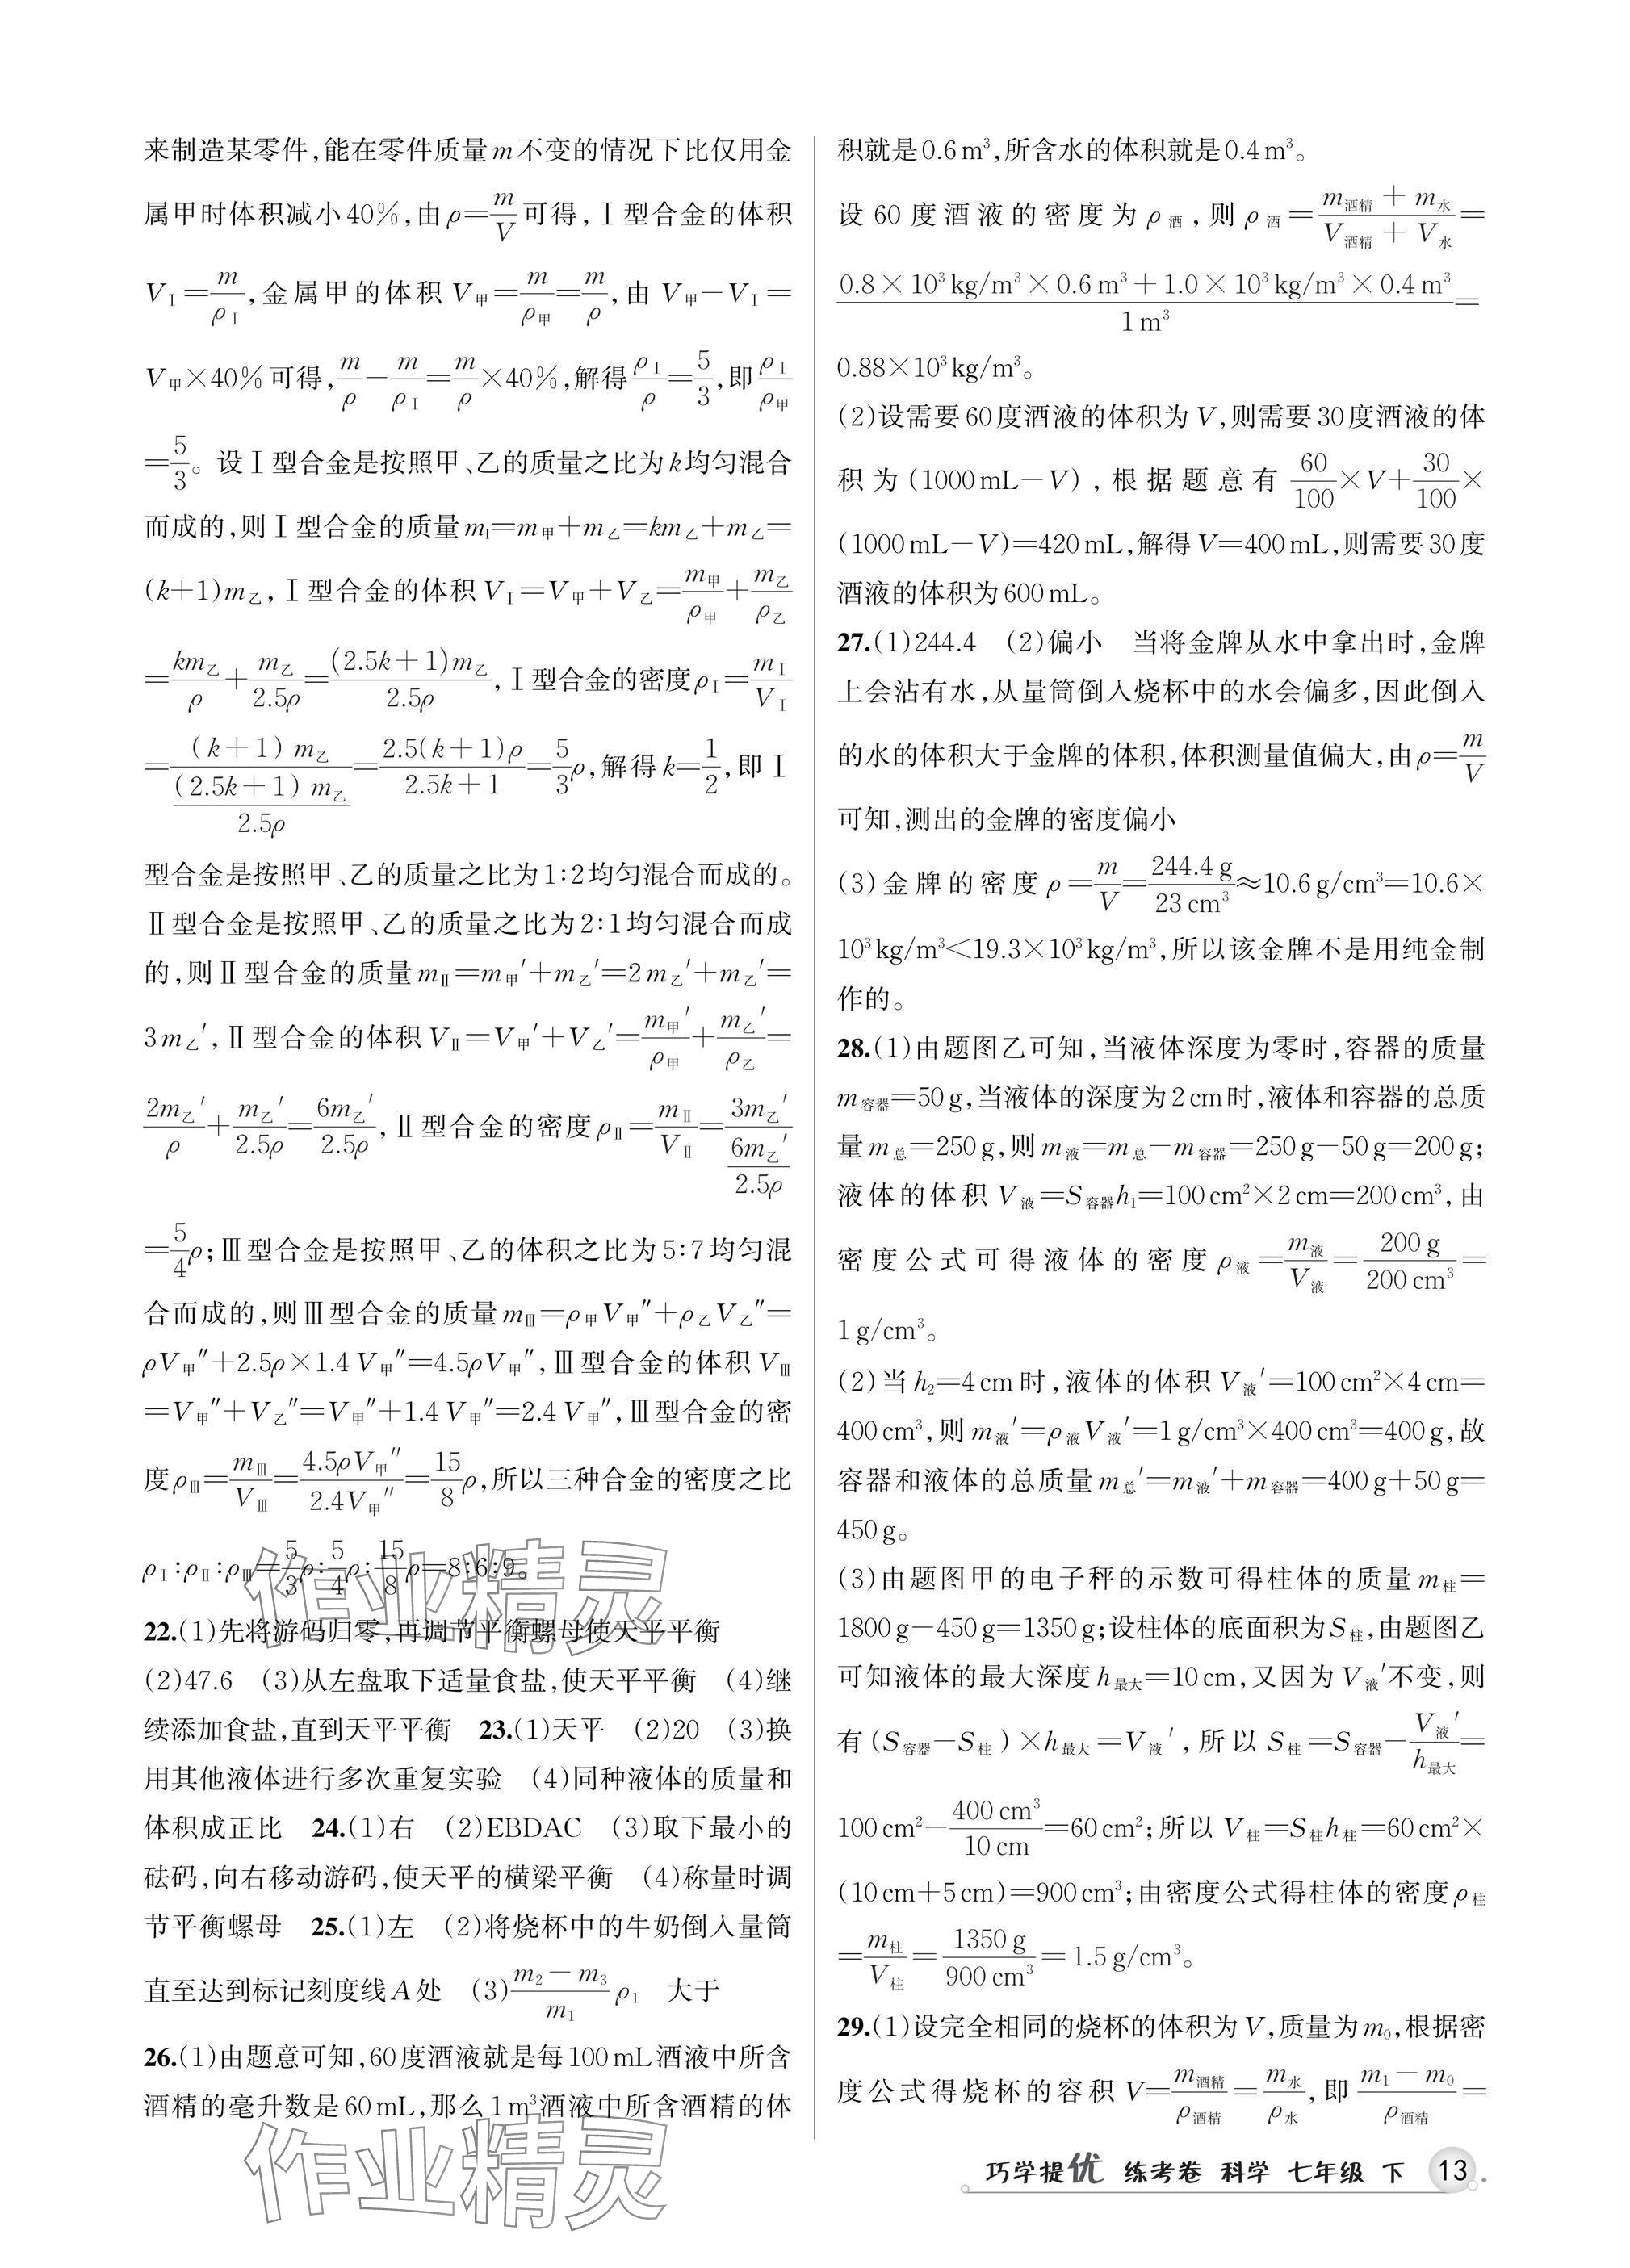 来制造某零件,能在零件质量m不变的情况下比仅用金
属甲时体积减小40%,由ρ=m/V可得,Ⅰ型合金的体积
VⅠ=m/ρⅠ,金属甲的体积V甲=m/ρ甲=m/ρ,由V甲-VⅠ=
V甲×40%可得,m/ρ-m/ρⅠ=m/ρ×40%,解得ρⅠ/ρ=5/3,即ρⅠ/ρ甲
=5/3。设Ⅰ型合金是按照甲、乙的质量之比为k均匀混合
而成的,则Ⅰ型合金的质量mⅠ=m甲+m乙=km乙+m乙=
(k+1)m乙,Ⅰ型合金的体积VⅠ=V甲+V乙=m甲/ρ甲+m乙/ρ乙
=km乙/ρ+m乙/2.5ρ=(2.5k+1)m乙/2.5ρ,Ⅰ型合金的密度ρⅠ=mⅠ/VⅠ
=(k+1)m乙/((2.5k+1)m乙/2.5ρ)=2.5(k+1)ρ/(2.5k+1)=5/3ρ,解得k=1/2,即Ⅰ
型合金是按照甲、乙的质量之比为1:2均匀混合而成的。
Ⅱ型合金是按照甲、乙的质量之比为2:1均匀混合而成
的,则Ⅱ型合金的质量mⅡ=m甲′+m乙′=2m乙′+m乙′=
3m乙′,Ⅱ型合金的体积VⅡ=V甲′+V乙′=m甲′/ρ甲+m乙′/ρ乙=
2m乙′/ρ+m乙′/2.5ρ=6m乙′/2.5ρ,Ⅱ型合金的密度ρⅡ=mⅡ/VⅡ=3m乙′/(6m乙′/2.5ρ)
=5/4ρ;Ⅲ型合金是按照甲、乙的体积之比为5:7均匀混
合而成的,则Ⅲ型合金的质量mⅢ=ρ甲V甲″+ρ乙V乙″=
ρV甲″+2.5ρ×1.4V甲″=4.5ρV甲″,Ⅲ型合金的体积VⅢ
=V甲″+V乙″=V甲″+1.4V甲″=2.4V甲″,Ⅲ型合金的密
度ρⅢ=mⅢ/VⅢ=4.5ρV甲″/2.4V甲″=15/8ρ,所以三种合金的密度之比
ρⅠ:ρⅡ:ρⅢ=5/3ρ:5/4ρ:15/8ρ=8:6:9。
作业精灵
22.(1)先将游码归零,再调节平衡螺母使天平平衡
(2)47.6 (3)从左盘取下适量食盐,使天平平衡 (4)继
续添加食盐,直到天平平衡 23.(1)天平 (2)20 (3)换
用其他液体进行多次重复实验 (4)同种液体的质量和
体积成正比 24.(1)右 (2)EBDAC (3)取下最小的
砝码,向右移动游码,使天平的横梁平衡 (4)称量时调
节平衡螺母 25.(1)左 (2)将烧杯中的牛奶倒入量筒
直至达到标记刻度线A处 (3)(m₂-m₃)/m₁ ρ₁ 大于
26.(1)由题意可知,60度酒液就是每100mL酒液中所含
酒精的毫升数是60mL,那么1m³酒液中所含酒精的体
作业精灵
积就是0.6m³,所含水的体积就是0.4m³。
设60度酒液的密度为ρ酒,则ρ酒=(m酒精+m水)/(V酒精+V水)=
(0.8×10³kg/m³×0.6m³+1.0×10³kg/m³×0.4m³)/1m³=
0.88×10³kg/m³。
(2)设需要60度酒液的体积为V,则需要30度酒液的体
积为(1000mL-V),根据题意有60/100×V+30/100×
(1000mL-V)=420mL,解得V=400mL,则需要30度
酒液的体积为600mL。
27.(1)244.4 (2)偏小 当将金牌从水中拿出时,金牌
上会沾有水,从量筒倒入烧杯中的水会偏多,因此倒入
的水的体积大于金牌的体积,体积测量值偏大,由ρ=m/V
可知,测出的金牌的密度偏小
(3)金牌的密度ρ=m/V=244.4g/23cm³≈10.6g/cm³=10.6×
10³kg/m³<19.3×10³kg/m³,所以该金牌不是用纯金制
作的。
28.(1)由题图乙可知,当液体深度为零时,容器的质量
m容器=50g,当液体的深度为2cm时,液体和容器的总质
量m总=250g,则m液=m总-m容器=250g-50g=200g;
液体的体积V液=S容器h₁=100cm²×2cm=200cm³,由
密度公式可得液体的密度ρ液=m液/V液=200g/200cm³=
1g/cm³。
(2)当h₂=4cm时,液体的体积V液′=100cm²×4cm=
400cm³,则m液′=ρ液V液′=1g/cm³×400cm³=400g,故
容器和液体的总质量m总′=m液′+m容器=400g+50g=
450g。
(3)由题图甲的电子秤的示数可得柱体的质量m柱=
1800g-450g=1350g;设柱体的底面积为S柱,由题图乙
可知液体的最大深度h最大=10cm,又因为V液′不变,则
有(S容器-S柱)×h最大=V液′,所以S柱=S容器-V液′/h最大=
100cm²-400cm³/10cm=60cm²;所以V柱=S柱h柱=60cm²×
(10cm+5cm)=900cm³;由密度公式得柱体的密度ρ柱
=m柱/V柱=1350g/900cm³=1.5g/cm³。
29.(1)设完全相同的烧杯的体积为V,质量为m₀,根据密
度公式得烧杯的容积V=m酒精/ρ酒精=m水/ρ水,即(m₁-m₀)/ρ酒精=
巧学提优 练考卷 科学 七年级 下 13